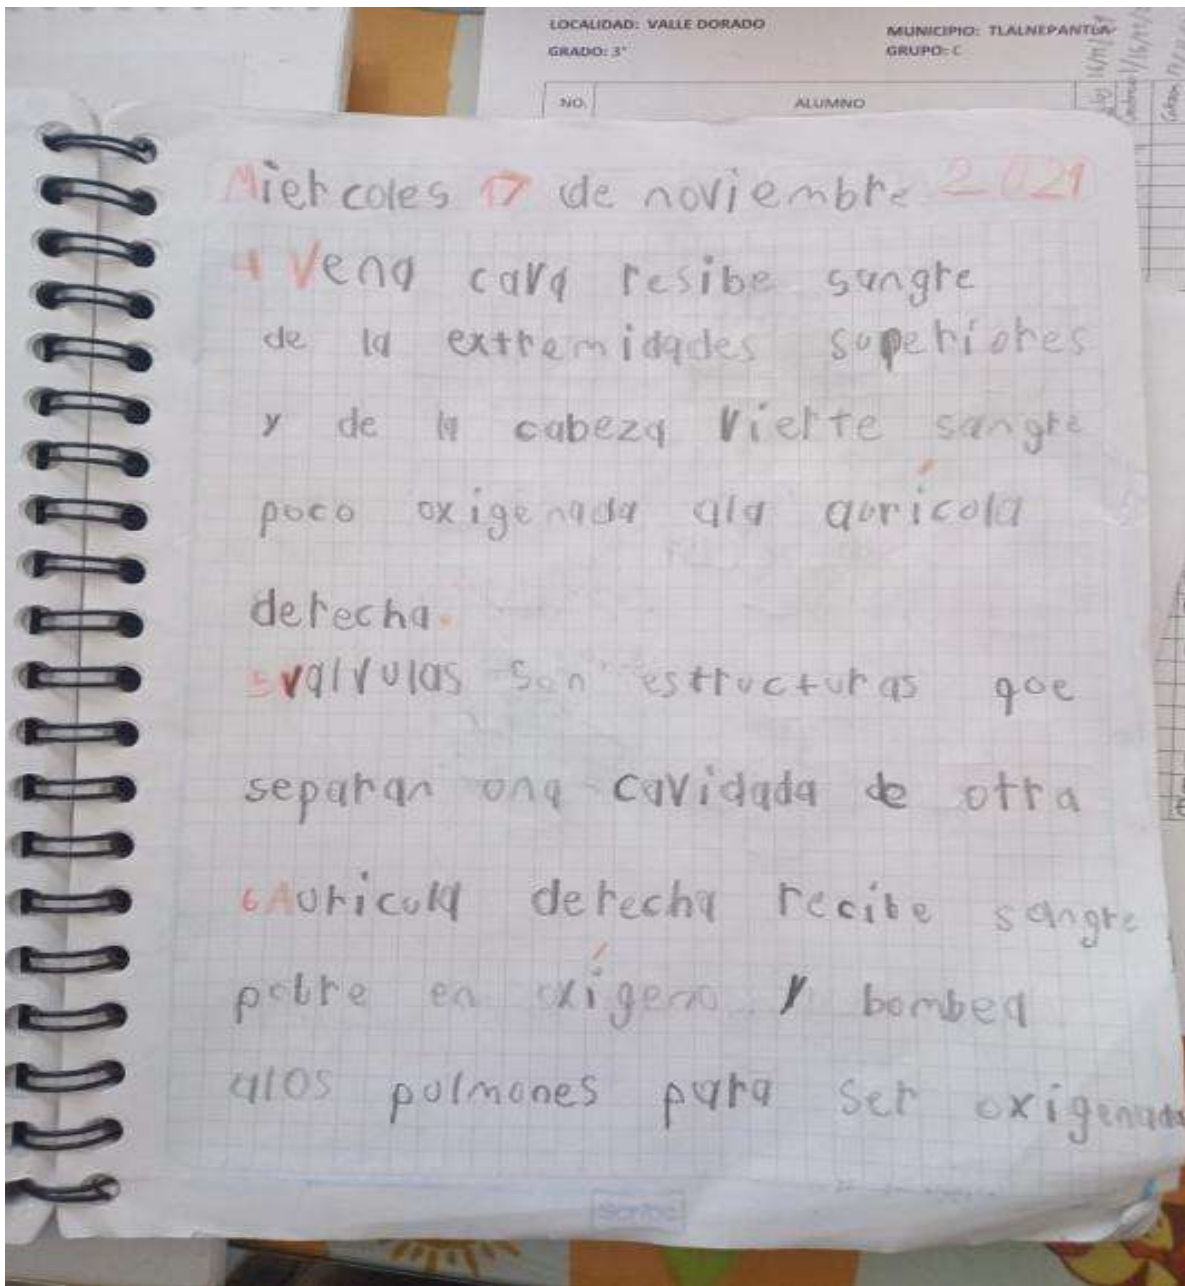 LOCALIDAD: VALLE DORADO
MUNICIPIO: TLALNEPANTLA
GRADO: 3°
GRUPO: C
NO.
ALUMNO
Miercoles 17 de noviembre 2021
4 Vena cava resibe sangre
de la extremidades superiores
y de la cabeza vierte sangre
poco oxigenada ala aurícola
derecha.
5 valvulas son estructuras que
separan una cavidada de otra
6 Auricula derecha recibe sangre
pobre en oxígeno y bombea
alos pulmones para ser oxigenada
Scribe